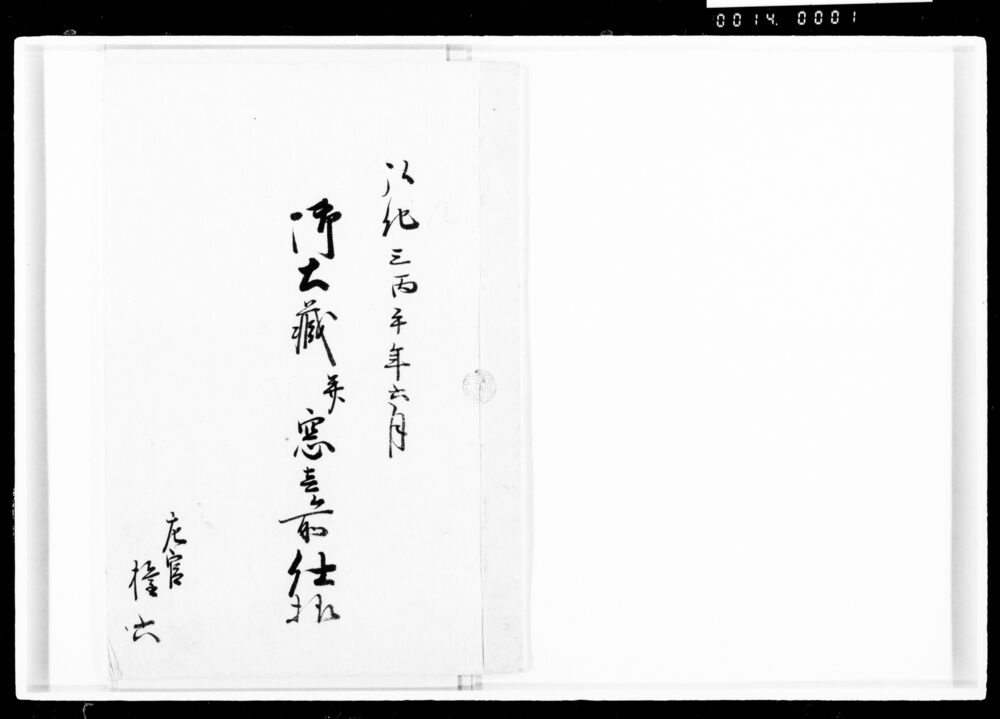 0014. 0001
弘化三丙午年六月
御土蔵并窓
前仕様
庄官
権六